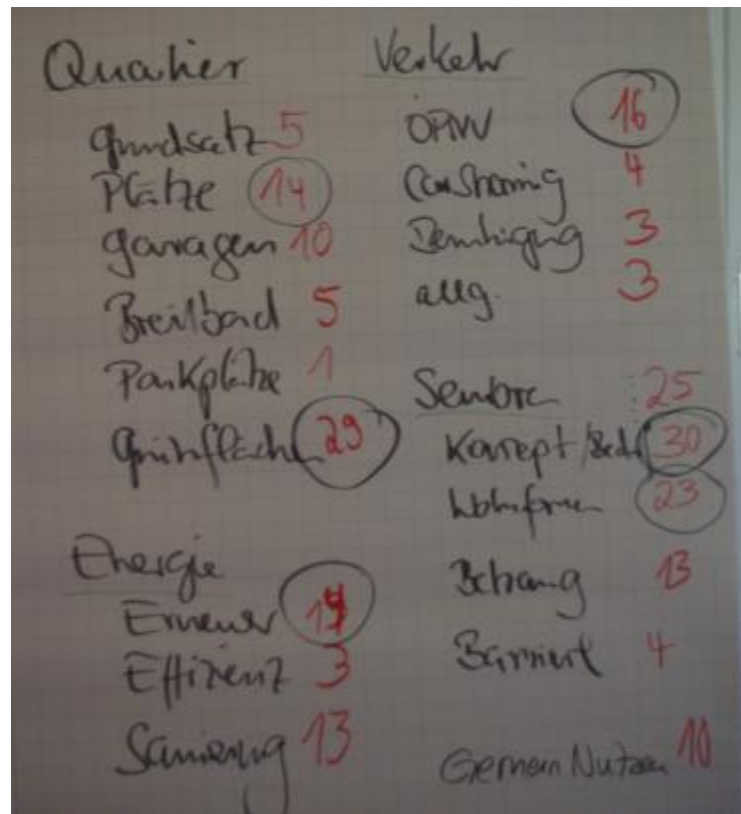 Quartier
Grundsatz 5
Plätze 14
Garagen 10
Breilbad 5
Parkplätze 1
Grünfläche 29
Energie
Erneuer
Effizienz 3
Sanierung 13
Verkehr
ÖPNV 16
CarSharing 4
Beruhigung 3
allg. 3
Senioren 25
Konzept / 30
Wohnformen 23
Betreuung 13
Barriere 4
Gemein Nutzen 10